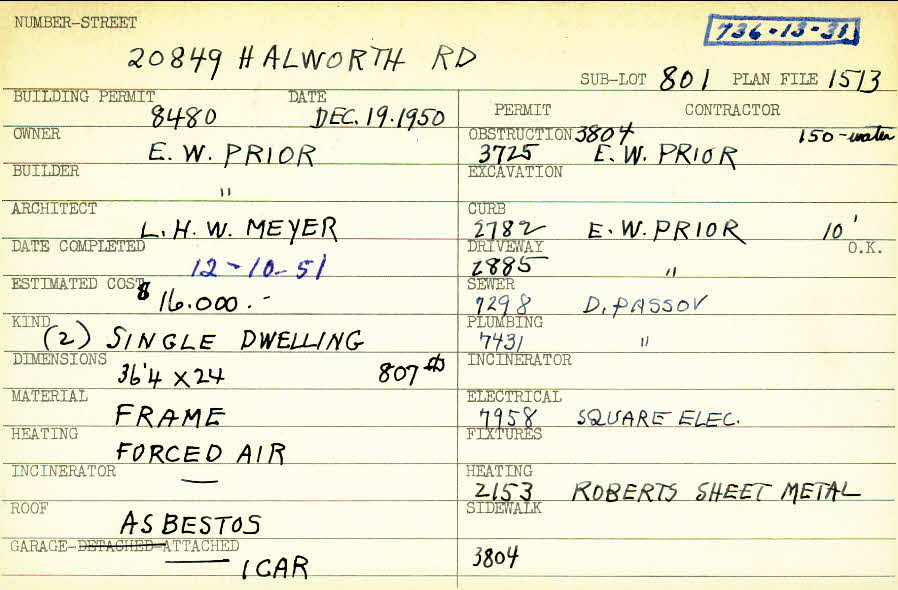 NUMBER-STREET
736-13-31
20849 HALWORTH RD
SUB-LOT 801 PLAN FILE 1513
BUILDING PERMIT DATE
8480 DEC. 19. 1950
OWNER
E. W. PRIOR
BUILDER
"
ARCHITECT
L. H. W. MEYER
DATE COMPLETED
12-10-51
ESTIMATED COST
$16.000.-
KIND
(2) SINGLE DWELLING
DIMENSIONS
36'4 x 24 807
MATERIAL
FRAME
HEATING
FORCED AIR
INCINERATOR
—
ROOF
ASBESTOS
GARAGE-DETACHED-ATTACHED
1 CAR
PERMIT CONTRACTOR
OBSTRUCTION 3804 150-water
3725 E. W. PRIOR
EXCAVATION
CURB
2782 E. W. PRIOR 10'
DRIVEWAY O.K.
2885 "
SEWER
7298 D. PASSOV
PLUMBING
7431 "
INCINERATOR
ELECTRICAL
7958 SQUARE ELEC.
FIXTURES
HEATING
2153 ROBERTS SHEET METAL
SIDEWALK
3804